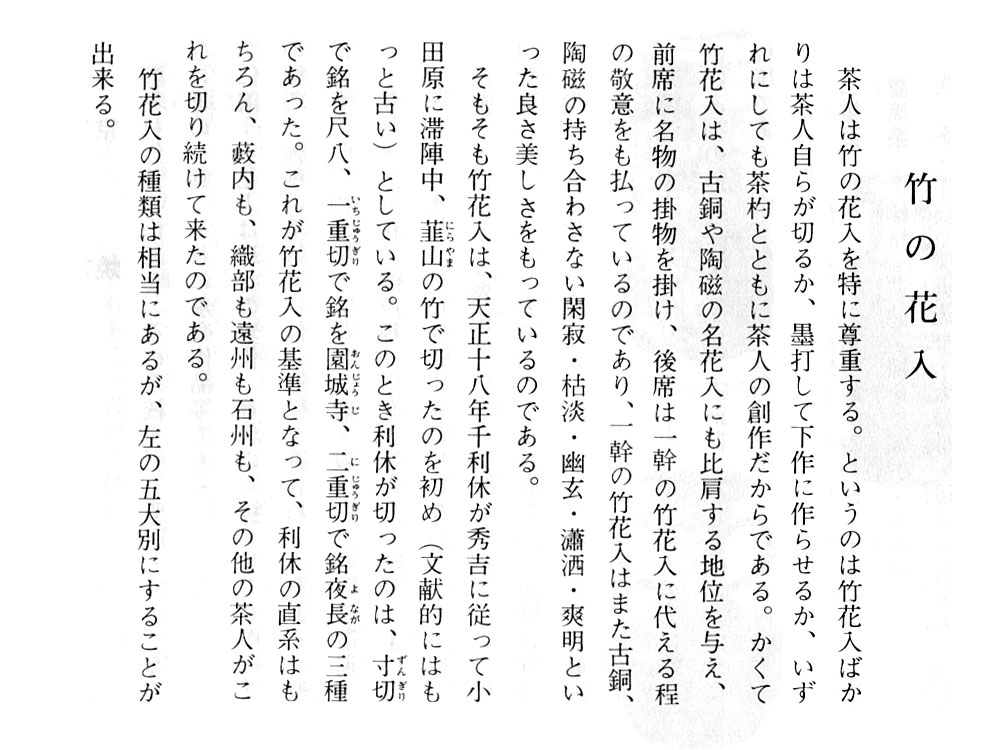 竹の花入
茶人は竹の花入を特に尊重する。というのは竹花入ばか
りは茶人自らが切るか、墨打して下作に作らせるか、いず
れにしても茶杓とともに茶人の創作だからである。かくて
竹花入は、古銅や陶磁の名花入にも比肩する地位を与え、
前席に名物の掛物を掛け、後席は一幹の竹花入に代える程
の敬意をも払っているのであり、一幹の竹花入はまた古銅、
陶磁の持ち合わさない閑寂・枯淡・幽玄・瀟洒・爽明とい
った良さ美しさをもっているのである。
そもそも竹花入は、天正十八年千利休が秀吉に従って小
田原に滞陣中、韮山の竹で切ったのを初め（文献的にはも
っと古い）としている。このとき利休が切ったのは、寸切
で銘を尺八、一重切で銘を園城寺、二重切で銘夜長の三種
であった。これが竹花入の基準となって、利休の直系はも
ちろん、藪内も、織部も遠州も石州も、その他の茶人がこ
れを切り続けて来たのである。
竹花入の種類は相当にあるが、左の五大別にすることが
出来る。